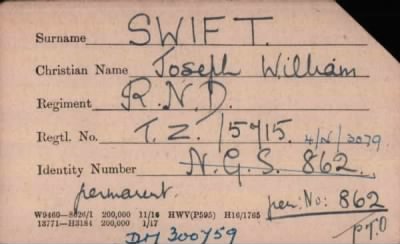 Surname SWIFT.
Christian Name Joseph William
Regiment R.N.D.
Regtl. No. T.Z. /5715. 4/N/3079
Identity Number N.G.S. 862.
permanent. per: No: 862
W9460—8626/1 200,000 11/16 HWV(P595) H16/1765
13771—H3184 200,000 1/17
DM 300759 P.T.O